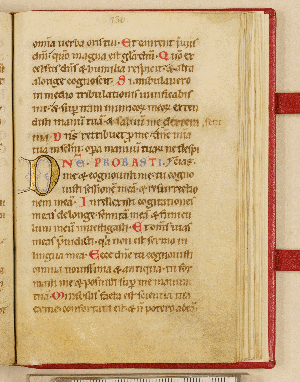 omnia uerba oris tui. Et cantent in uiis
dñi: qm̄ magna est gl̄a dñi. Qm̄ ex
celsus dñs & humilia respicit: & alta
a longe cognoscit. Si ambulauero
in medio tribulationis uiuificabis
me: & sup iram inimicoꝝ meoꝝ exten
disti manū tuā & saluū me
tua. Dñs retribuet p me: dñe mĩa
tua in seculū: opa manuū tuaꝝ ne despi
DNE PROBASTI
me & cognouisti me: tu cogno
uisti sessionē meā & resurrectio
nem meā. Intellexisti cogitationes
meas de longe: semitā meā & funicu
lum meū inuestigasti. Et omīs uias
meas p̄uidisti: quia non est sermo in
lingua mea. Ecce dñe tu cognouisti
omnia nouissima & antiqua: tu for
masti me & posuisti sup me manum
tuā. Mirabilis facta est scientia tua
ex me: confortata est & ñ potero ad eā.